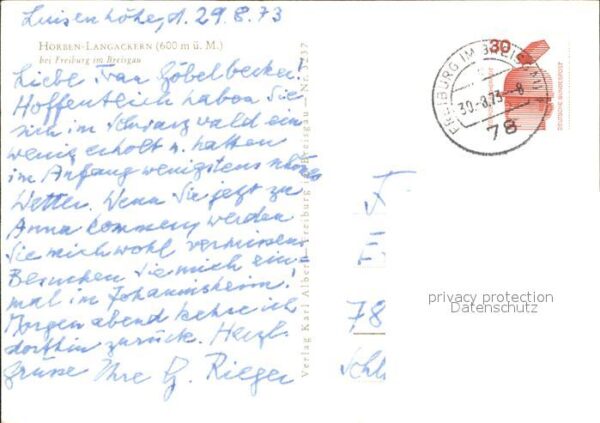 Luisenhöhe, d. 29.8.73
HORBEN-LANGACKERN (600 m ü. M.)
bei Freiburg im Breisgau
Liebe Frau Göbelbecker!
Hoffentlich haben Sie
sich im Schwarzwald ein
wenig erholt u. hatten
im Anfang wenigstens schönes
Wetter. Wenn Sie jetzt zu
Anna kommen, werden
Sie mich wohl vermissen.
Besuchen Sie mich ein-
mal im Johannisheim!
Morgen abend kehre ich
dorthin zurück. Herzl.
Grüsse Ihre G. Rieger
Verlag Karl Alber — Freiburg im Breisgau — Nr.
30
DEUTSCHE BUNDESPOST
FREIBURG IM BREISGAU
30.-8.73.-8
78
F
78
Schl
privacy protection
Datenschutz